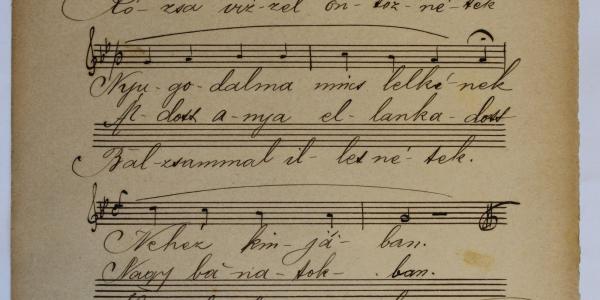 Ró-zsa viz-zel ön-töz-né-tek
Nyu-go-dalma nincs lelké-nek
Ál-dott a-nya el-lanka-dott
Bal-zsammal il-let né-tek.
Nehez kin-já-ban.
Nagy bá-na-tok-ban.